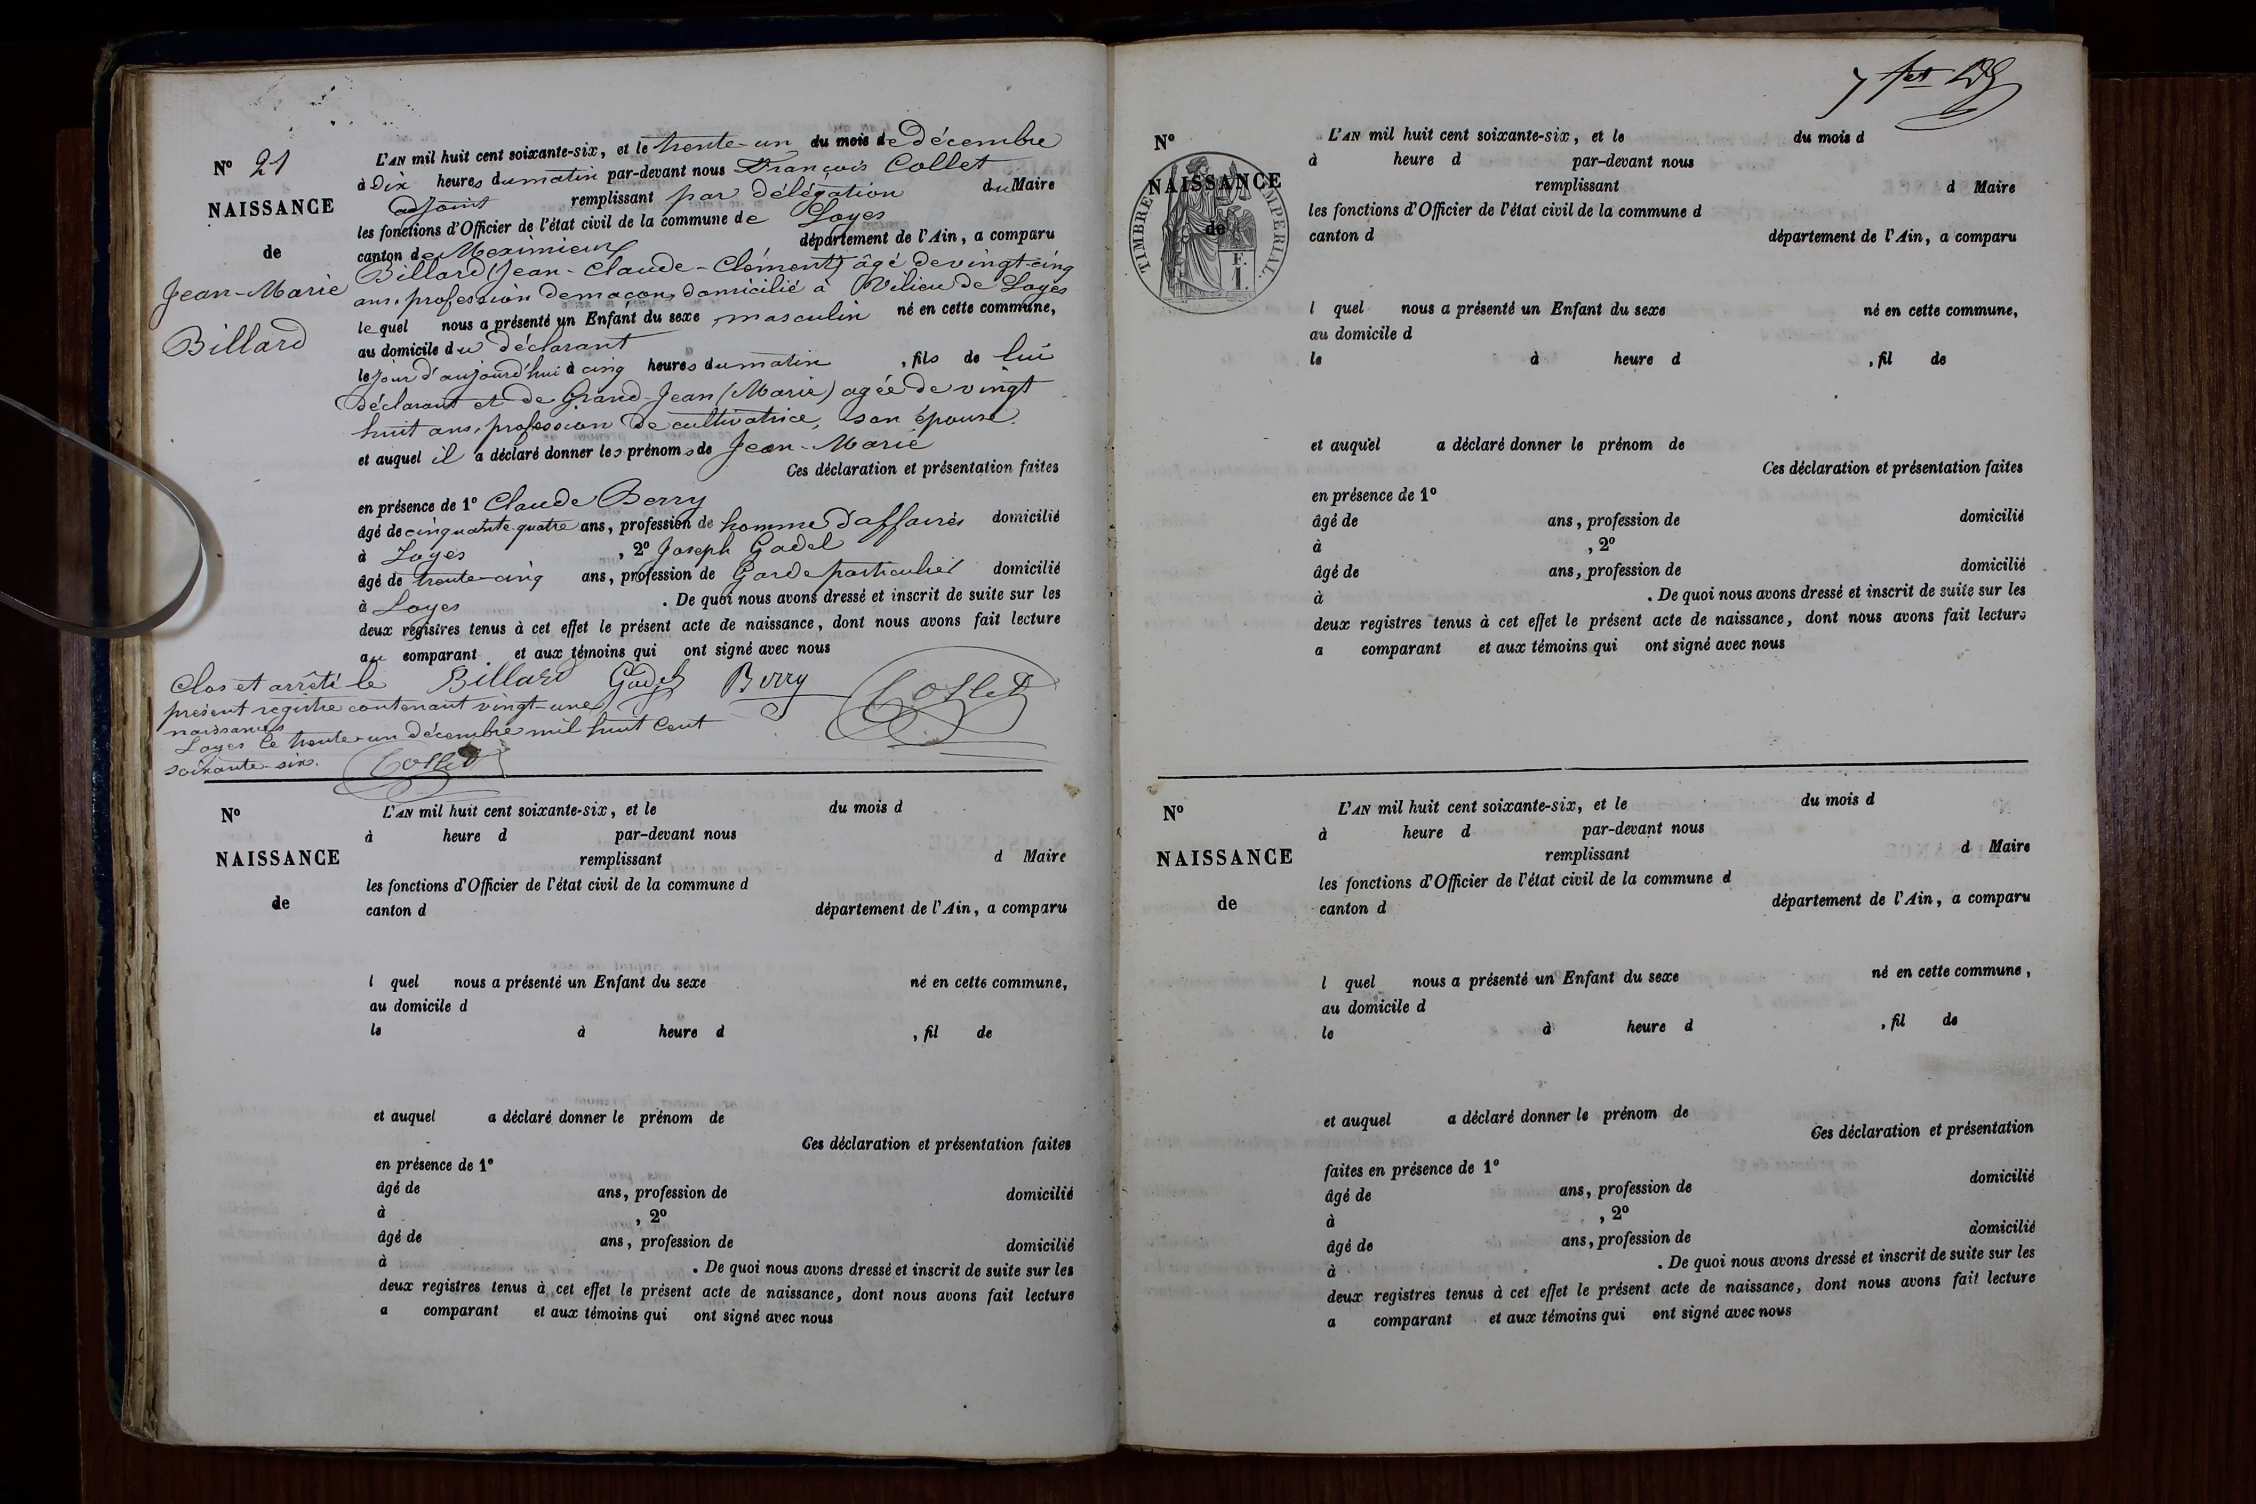 N° 21
NAISSANCE
de
Jean-Marie
Billard
L'AN mil huit cent soixante-six, et le trente-un du mois de Décembre
à Dix heures du matin par-devant nous François Collet
adjoint remplissant par délégation du Maire
les fonctions d'Officier de l'état civil de la commune de Loyes
canton de Meximieux département de l'Ain, a comparu
Billard (Jean-Claude-Clément) âgé de vingt-cinq
ans, profession de maçon, domicilié à Vilieu de Loyes
lequel nous a présenté un Enfant du sexe masculin né en cette commune,
au domicile du déclarant
le jour d'aujourd'hui à cinq heures du matin, fils de lui
déclarant et de Grand-Jean (Marie) agée de vingt
huit ans, profession de cultivatrice, son épouse.
et auquel il a déclaré donner les prénoms de Jean-Marie
Ces déclaration et présentation faites
en présence de 1° Claude Berry
âgé de cinquante-quatre ans, profession de homme d'affaires domicilié
à Loyes, 2° Joseph Gadel
âgé de trente-cinq ans, profession de Garde particulier domicilié
à Loyes. De quoi nous avons dressé et inscrit de suite sur les
deux registres tenus à cet effet le présent acte de naissance, dont nous avons fait lecture
au comparant et aux témoins qui ont signé avec nous
Billard Gadel Berry Collet
Clos et arrêté le
présent registre contenant vingt-une
naissances
Loyes le trente-un décembre mil huit cent
soixante-six.
Collet
N°
NAISSANCE
de
L'AN mil huit cent soixante-six, et le du mois d
à heure d par-devant nous
remplissant d Maire
les fonctions d'Officier de l'état civil de la commune d
canton d département de l'Ain, a comparu
l quel nous a présenté un Enfant du sexe né en cette commune,
au domicile d
le à heure d , fil de
et auquel a déclaré donner le prénom de
Ces déclaration et présentation faites
en présence de 1°
âgé de ans, profession de domicilié
à , 2°
âgé de ans, profession de domicilié
à . De quoi nous avons dressé et inscrit de suite sur les
deux registres tenus à cet effet le présent acte de naissance, dont nous avons fait lecture
a comparant et aux témoins qui ont signé avec nous
N°
NAISSANCE
de
TIMBRE IMPERIAL.
F.
1.
L'AN mil huit cent soixante-six, et le du mois d
à heure d par-devant nous
remplissant d Maire
les fonctions d'Officier de l'état civil de la commune d
canton d département de l'Ain, a comparu
l quel nous a présenté un Enfant du sexe né en cette commune,
au domicile d
le à heure d , fil de
et auquel a déclaré donner le prénom de
Ces déclaration et présentation faites
en présence de 1°
âgé de ans, profession de domicilié
à , 2°
âgé de ans, profession de domicilié
à . De quoi nous avons dressé et inscrit de suite sur les
deux registres tenus à cet effet le présent acte de naissance, dont nous avons fait lecture
a comparant et aux témoins qui ont signé avec nous
N°
NAISSANCE
de
L'AN mil huit cent soixante-six, et le du mois d
à heure d par-devant nous
remplissant d Maire
les fonctions d'Officier de l'état civil de la commune d
canton d département de l'Ain, a comparu
l quel nous a présenté un Enfant du sexe né en cette commune,
au domicile d
le à heure d , fil de
et auquel a déclaré donner le prénom de
Ces déclaration et présentation
faites en présence de 1°
âgé de ans, profession de domicilié
à , 2°
âgé de ans, profession de domicilié
à . De quoi nous avons dressé et inscrit de suite sur les
deux registres tenus à cet effet le présent acte de naissance, dont nous avons fait lecture
a comparant et aux témoins qui ont signé avec nous